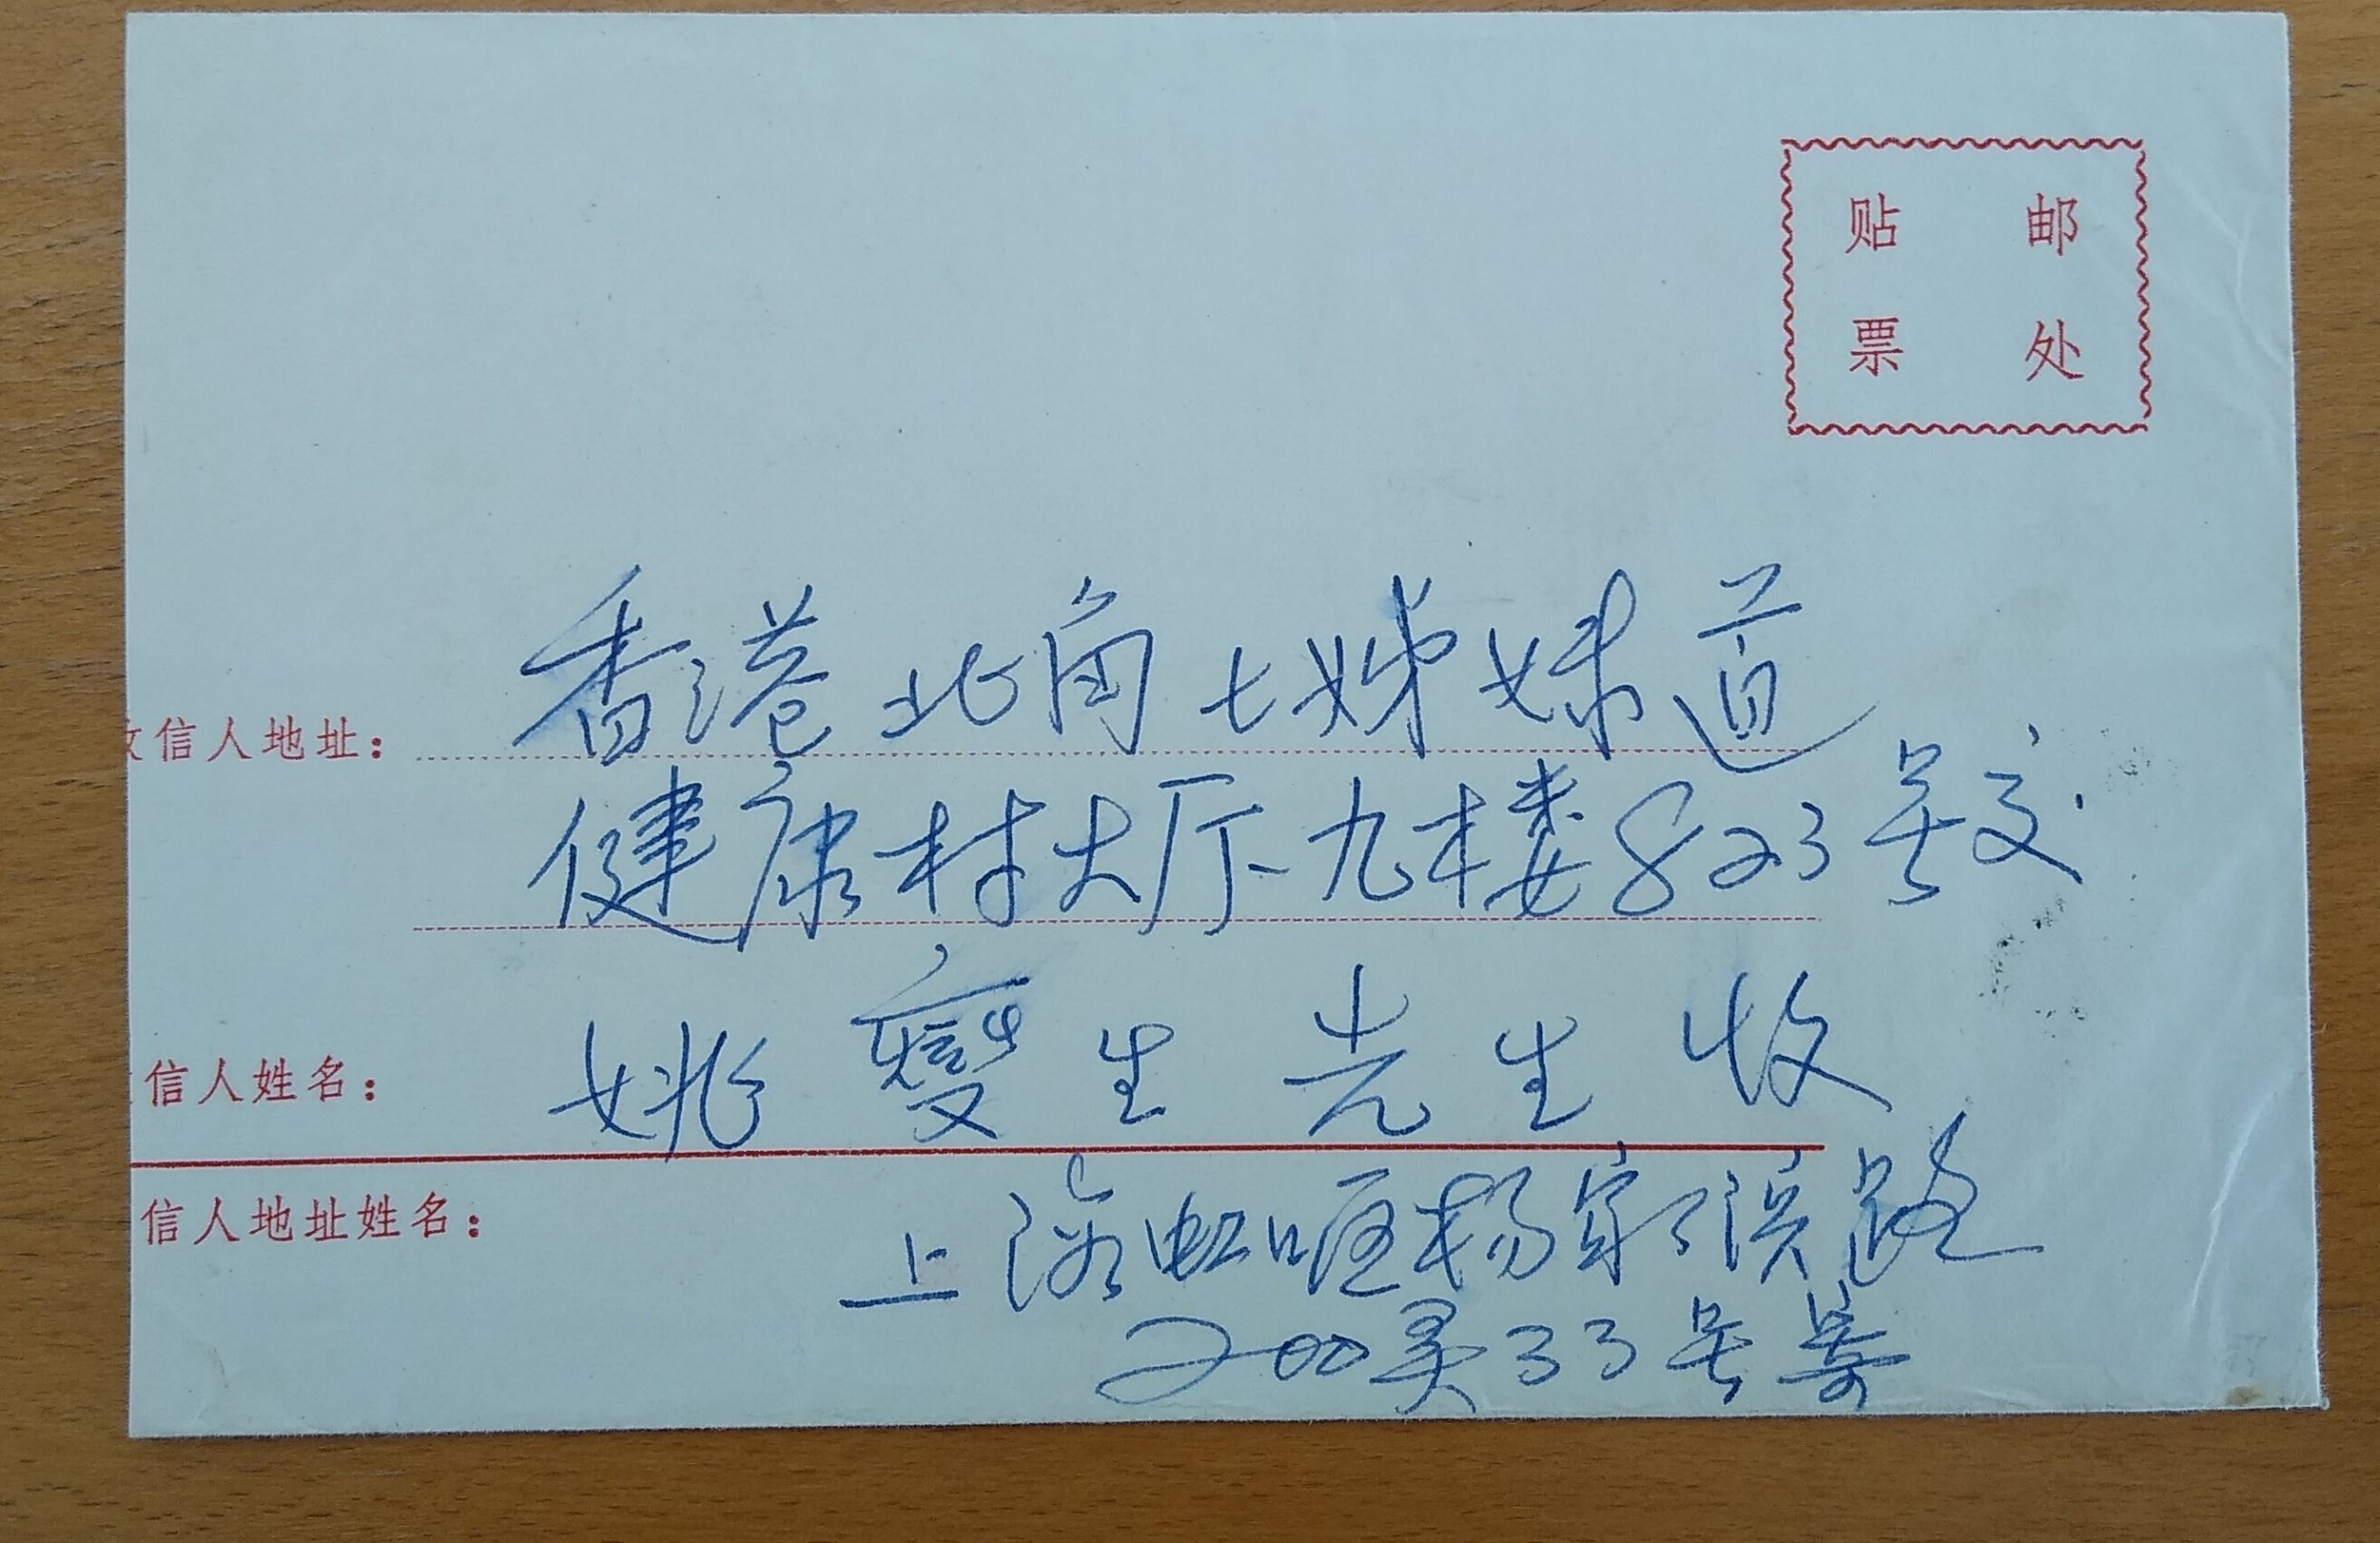 贴 邮
票 处
香港北角七姊妹道
收信人地址：
健康村大厅九楼823号交
姚 燮 生 先 生 收
信人姓名：
上海虹 杨家 路
信人地址姓名：
200弄33号寄